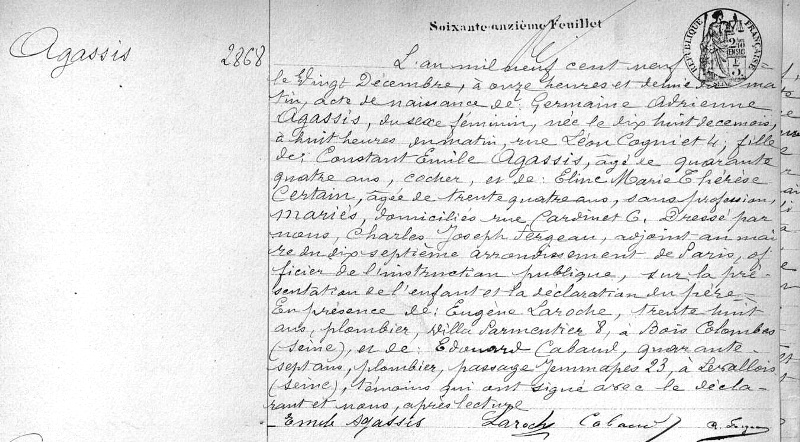 Soixante-onzième Feuillet
RÉPUBLIQUE FRANÇAISE
Agassis 2868
L'an mil neuf cent neuf
le vingt Décembre, à onze heures et demie du ma
tin, acte de naissance de: Germaine Adrienne
Agassis, du sexe féminin, née le dix huit de ce mois,
à huit heures du matin, rue Léon Cogniet 4, fille
de: Constant Emile Agassis, âgé de quarante
quatre ans, cocher, et de: Eline Marie Thérèse
Certain, âgée de trente quatre ans, sans profession,
mariés, domiciliés rue Cardinet 6. Dressé par
nous, Charles Joseph Fergeau, adjoint au mai
re du dix septième arrondissement de Paris, of
ficier de l'instruction publique, sur la pré-
sentation de l'enfant et la déclaration du père.
En présence de: Eugène Laroche, trente huit
ans, plombier, villa Parmentier 8, à Bois Colombes
(seine), et de: Edouard Cabaud, quarante
sept ans, plombier, passage Jemmapes 23, à Levallois
(seine), témoins qui ont signé avec le décla-
rant et nous, après lecture
Emile Agassis Laroche Cabaud